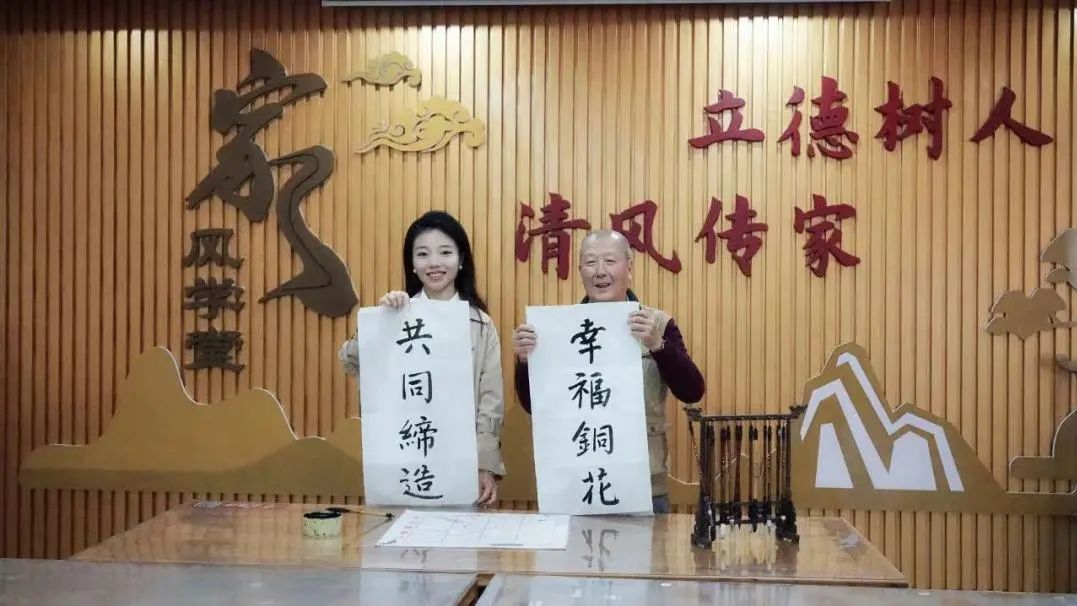 家
风学堂
立德树人
清风传家
共同締造
幸福銅花